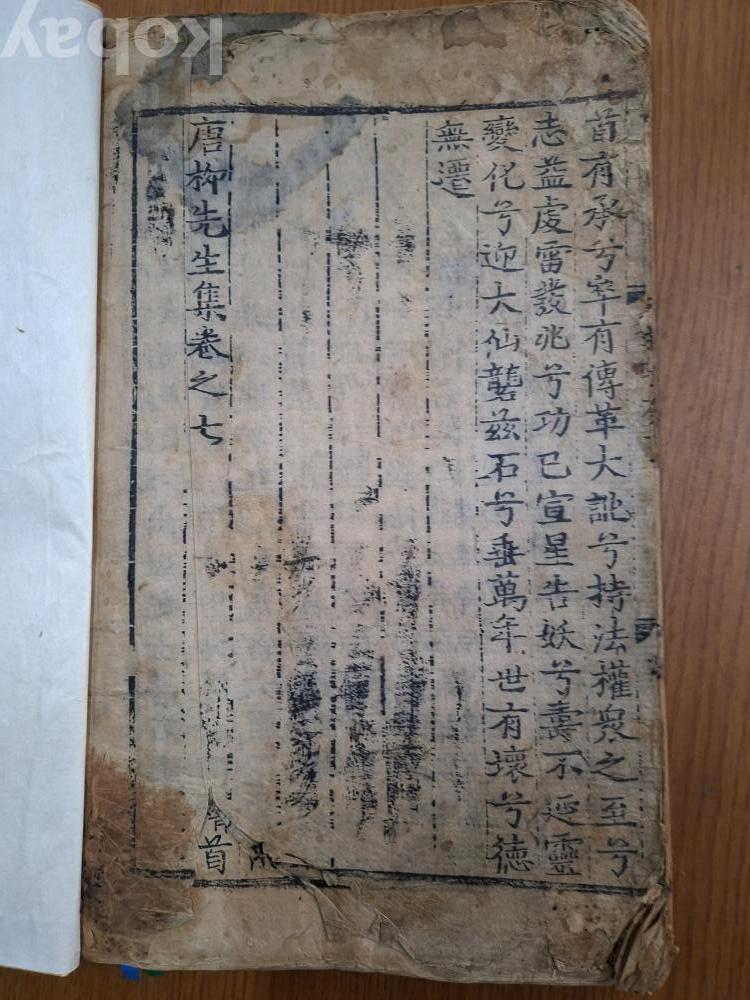 首有承兮卒有傳革大訛兮持法權衆之至兮
志益虔雷發兆兮功已宣星告妖兮壽不延靈
變化兮迎大仙礱茲石兮垂萬年世有壞兮德
無遷
唐柳先生集卷之七
首
Kobay